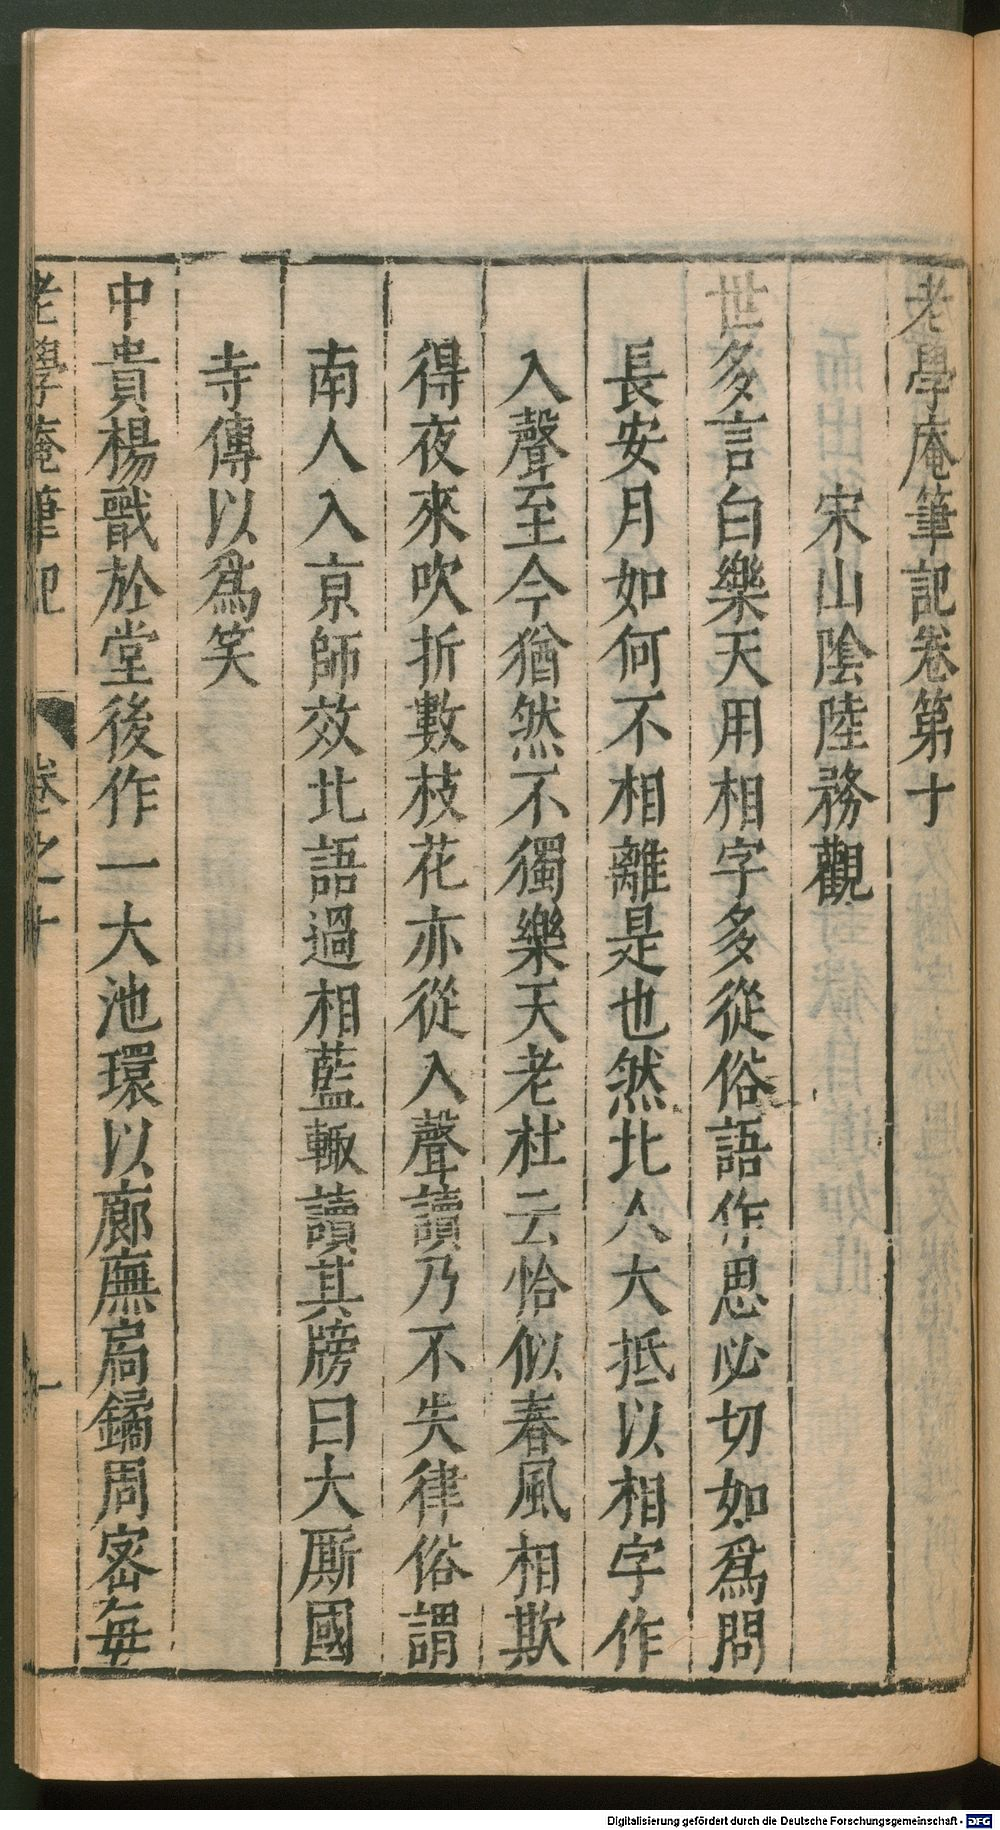 老學庵筆記卷第十
宋山陰陸務觀
世多言白樂天用相字多從俗語作思必切如爲問
長安月如何不相離是也然北人大抵以相字作
入聲至今猶然不獨樂天老杜云恰似春風相欺
得夜來吹折數枝花亦從入聲讀乃不失律俗謂
南人入京師效北語過相藍輙讀其牓曰大厮國
寺傳以爲笑
中貴楊戩於堂後作一大池環以廊廡扃鐍周密每
老學庵筆記
卷之十
一
Digitalisierung gefördert durch die Deutsche Forschungsgemeinschaft - DFG